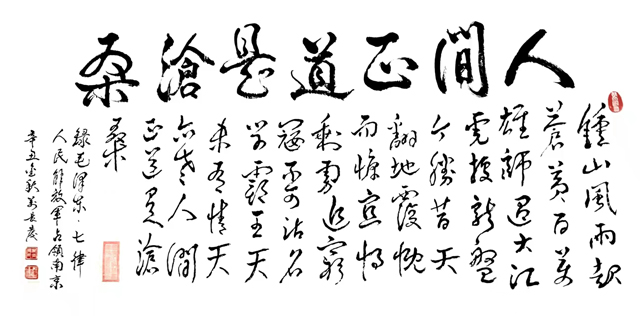 人間正道是滄桑
鍾山風雨起
蒼黃百萬
雄師過大江
虎踞龍盤
今勝昔天
翻地覆慨
而慷宜將
剩勇追窮
寇不可沽名
學霸王天
若有情天
亦老人間
正道是滄
桑
錄毛澤東·七律
人民解放軍占領南京
辛丑金秋